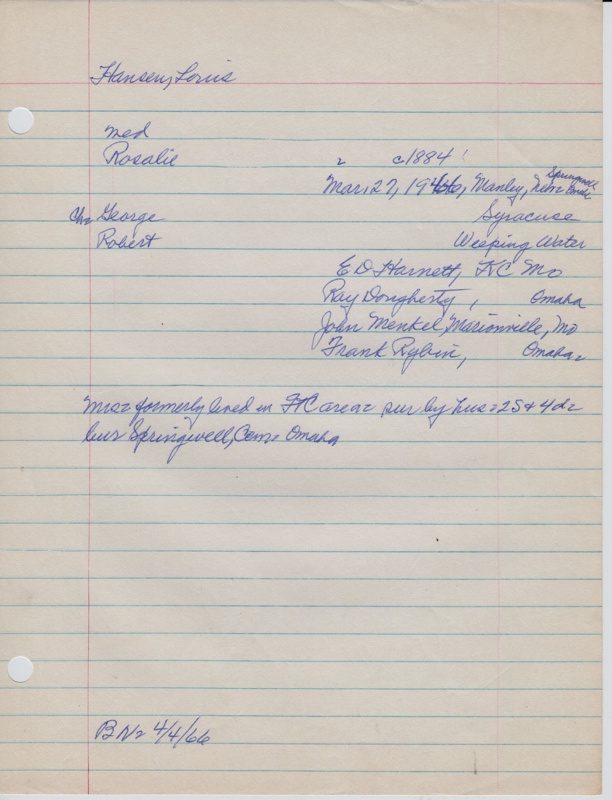 Hansen, Louis
med
Rosalie = c1884
Mar. 27, 1966, Manley, Neb= Springwell
Ch= George Syracuse
Robert Weeping Water
E D Harnett, KC Mo
Ray Dougherty, Omaha
John Menkel, Marionville, Mo
Frank Rybin, Omaha=
Mrs= formerly lived in FC area= sur by hus= 2S & 4d=
bur Springwell, Cem= Omaha
BN= 4/4/66